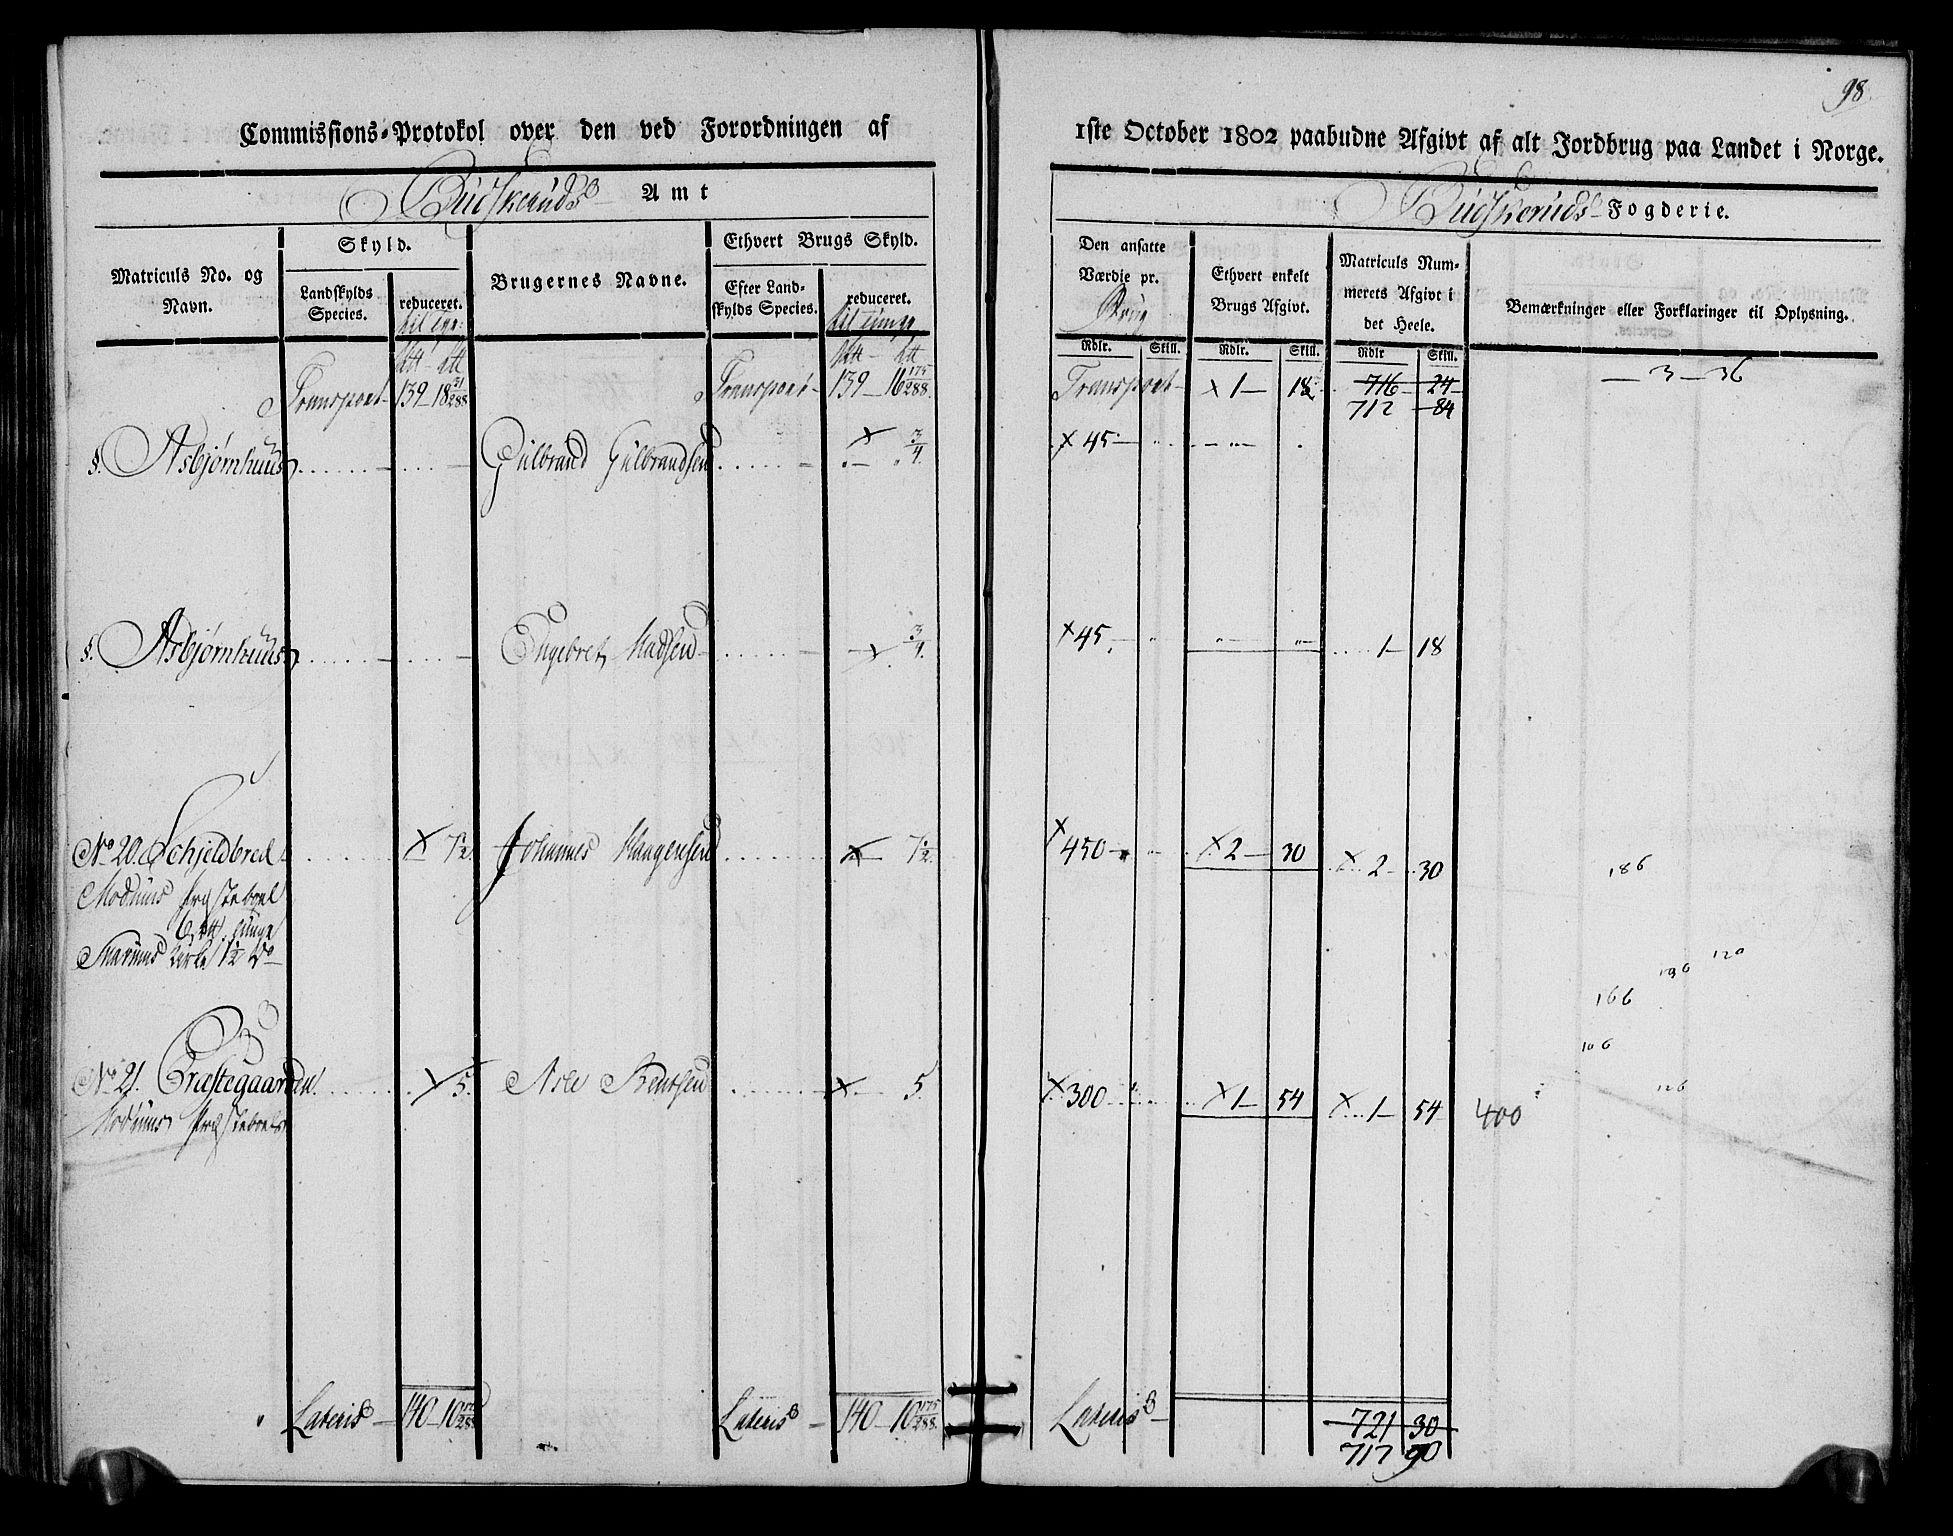 98.
Commissions-Protokol over den ved Forordningen af 1ste October 1802 paabudne Afgivt af alt Jordbrug paa Landet i Norge.
Budskeruds Amt
Budskeruds Fogderie.
Matriculs No. og Navn.
Skyld.
Landskylds Species.
reduceret.
Brugernes Navne.
Ethvert Brugs Skyld.
Efter Landskylds Species.
reduceret.
til Tunge
Den ansatte Værdie pr. Brug
Rdlr. Skill.
Ethvert enkelt Brugs Afgivt.
Rdlr. Skill.
Matriculs Nummerets Afgivt i det Heele.
Rdlr Skill.
Bemærkninger eller Forklaringer til Oplysning.
Transport 139 18 51/288 Transport 139 16 175/288 Transport 1 18 716 24 3 36
712 84
§. Asbjørnhuus Gulbrand Gulbrandsen 3/4 45
§. Asbjørnhuus Engebret Madsen 3/4 45 1 18
No 20. Schjeldbred 7 1/2 Johannes Haagensen 7 1/2 450 2 30 2 30 186
Modums Præsteboel
6 tunge
Kirke 1 1/2 do
120
166
106
No 21. Præstegaarden 5 5 300 1 54 1 54 400 126
Modums Præsteboel
Lateris 140 10 175/288 Lateris 140 10 175/288 Lateris 721 30
717 90